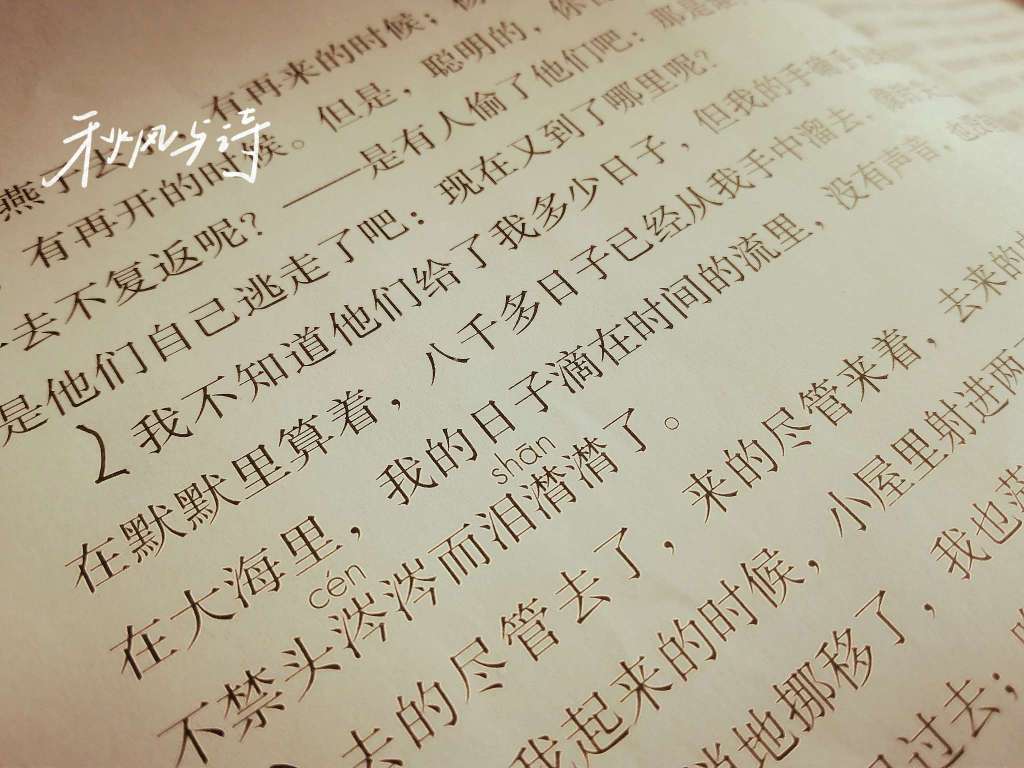 有再来的时候；
秋风与诗
燕子去了，有再开的时候。但是，聪明的，你
去不复返呢？——是有人偷了他们吧：那是
是他们自己逃走了吧：现在又到了哪里呢？
我不知道他们给了我多少日子，但我的手
在默默里算着，八千多日子已经从我手中溜去，
在大海里，我的日子滴在时间的流里，没有声音，
cén shān
不禁头涔涔而泪潸潸了。
去的尽管去了，来的尽管来着，去来的
我起来的时候，小屋里射进两
地挪移了，我也
过去；